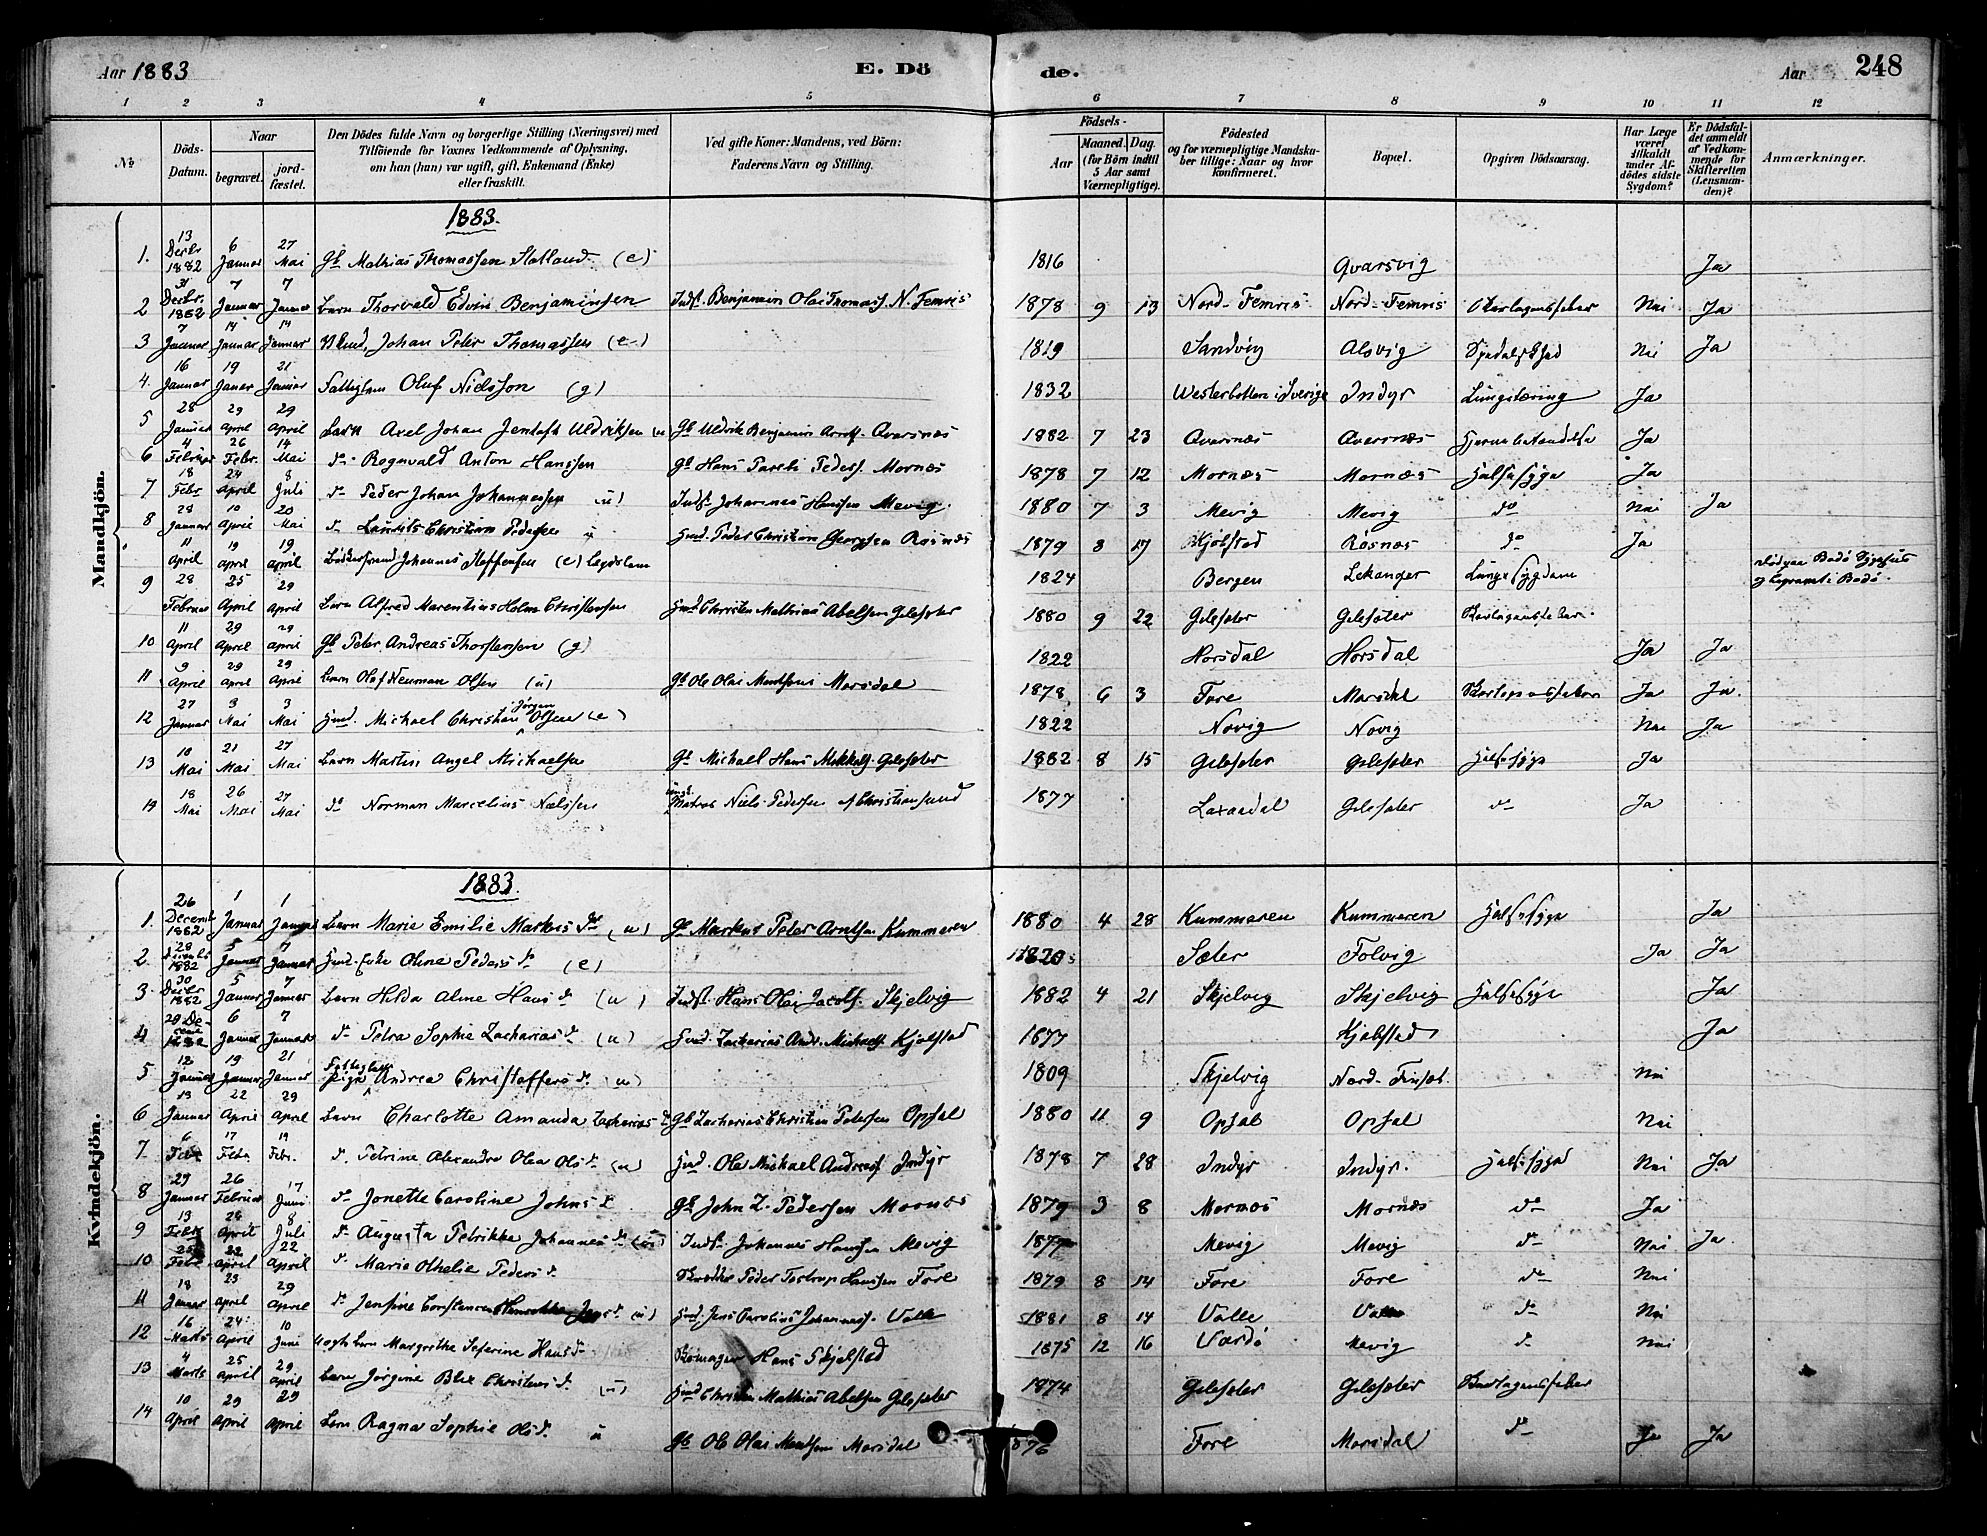 Aar 1883 E. Döde. Aar 248
1 2 3 4 5 6 7 8 9 10 11 12
No.
Döds-Datum.
Naar
begravet.
jordfæstet.
Den Dödes fulde Navn og borgerlige Stilling (Næringsvei) med
Tilföiende for Voxnes Vedkommende af Oplysning,
om han (hun) var ugift, gift, Enkemand (Enke)
eller fraskilt.
Ved gifte Koner: Mandens, ved Börn:
Faderens Navn og Stilling.
Födsels-
Aar
Maaned. Dag.
(for Börn indtil
5 Aar samt
Værnepligtige).
Födested
og for værnepligtige Mandskaber tillige: Naar og hvor
konfirmeret.
Bopæl.
Opgiven Dödsaarsag.
Har Læge
været
tilkaldt
under Afdödes sidste
Sygdom?
Er Dödsfaldet anmeldt
af Vedkommende for
Skifteretten
(Lensmanden)?
Anmærkninger.
Mandkjön.
1883.
1. 13 Decbr 1882 6 Januar 27 Mai Gb. Mathias Thomassen Stalland (e) 1816 Qvarsvig Ja
2 31 Decbr. 1882 7 Januar 7 Januar Barn Thorvald Edvin Benjaminsen Indst. Benjamin Olai Thomass. N. Femris 1878 9 13 Nord-Femris Nord-Femris Skarlagensfeber Nei Ja
3 7 Januar 14 Januar 14 Januar Johan Peter Thomassen (e) 1819 Sandvig Alsvig Spedalskhed Nei Ja
4. 16 Januar 19 Januar 21 Januar Fattiglem Oluf Nielsson (g) 1832 Westerbotten i Sverige Indyr Lungetæring Ja
5 28 Januar 29 April 29 April Barn Axel Johan Jentoft Uldriksen (u) Gb Uldrik Benjamin Arntss. Qvarsnæs 1882 7 23 Qvarsnæs Qvarsnæs Hjernebetændelse Ja
6 4 Februar 26 Febr. 14 Mai do Rognvald Anton Hanssen Gb Hans Pareli Peders. Mornæs 1878 7 12 Mornæs Mornæs Halsesyge Ja
7 18 Febr 24 April 8 Juli do Peder Johan Johannessen (u) Indst. Johannes Hanssen Mevig. 1880 7 3 Mevig Mevig do Nei Ja
8 28 Januar 10 April 20 Mai do Laurits Christian Pedersen u Husm. Peder Christian Georgsen Røsnæs 1879 8 17 Kjølstad Røsnæs do Ja
11 April 19 April 19 April Johannes Steffensen (e) Legdslem 1824 Bergen Lekanger Lungesygdom Død paa Bodø Sygehus og begravet i Bodø.
9 28 Februar 25 April 29 April Barn Alfred Marentius Holm Christensen Husm Christen Mathias Abelsen Gilesæter 1880 9 22 Gilesæter Gilesæter Skarlagensfeber
10 11 April 29 April 29 April Gb Peter Andreas Thorstensen (g) 1822 Horsdal Horsdal Ja Ja
11 9 April 29 April 29 April Barn Olaf Neuman Olsen (u) Gb Ole Olai Mentsen Morsdal 1878 6 3 Fore Morsdal Skarlagensfeber Ja Ja.
12 27 Januar 3 Mai 3 Mai Husm. Michael Christian Jørgen Olsen (e) 1822 Novig Novig Nei Ja
13 10 Mai 21 Mai 27 Mai Barn Martin Angel Michaelsen Gb Michael Hans Mikkels. Gilesæter 1882 8 15 Gilesæter Gilesæter Halsesyge Ja
14 18 Mai 26 Mai 27 Mai do Norman Marcelius Nielssen Matros Niels Pedersen af Christiansund 1877 Laxaadal Gilesæter do Ja
Kvindekjön.
1883.
1. 26 Decemb 1882 1 Januar 1 Januar Barn Marie Emilie Markusdr (u) Gb Markus Peter Arntsen Kummeren 1880 4 28 Kummeren Kummeren Halsesyge Ja
2. 28 Decemb 1882 5 Januar 7 Januar Husm. Enke Oline Pedersdr (e) 1820 Sæter Folvig Ja Ja
3 30 Decbr 1882 5 Januar 7 Januar Barn Hilda Aline Hansdr (u) Indst. Hans Olai Jacobs. Skjelvig 1882 4 21 Skjelvig Skjelvig Halsesyge Ja
4 29 December 1882 6 Januar 7 Januar do Petra Sophie Zachariasdr (u) Husm. Zacharias Andr. Michaels. Kjølstad 1877 Kjølstad Ja
5 12 Januar 19 Januar 21 Januar Fattiglem Pige Andrea Christoffersdr. (u) 1809 Skjelvig Nord-Finset. Nei
6 13 Januar 22 April 29 April Barn Charlotte Amanda Zachariasdr Gb Zacharias Christian Petersen Opsal 1880 11 9 Opsal Opsal Nei
7. 6 Febr 17 Febr 19 Febr. do Petrine Alexandra Olea Olsdr (u) Husm. Ole Michael Andreass. Indyr 1878 7 28 Indyr Indyr. Halsesyge Nei Ja
8 29 Januar 26 Februar 17 Juni do Jonette Caroline Johnsdr Gb John Z. Pedersen Mornæs 1879 3 8 Mornæs Mornæs do Ja
9 13 Febr 26 April 8 Juli do Augusta Petrikke Johannesdr (u) Indst. Johannes Hanssen Mevig 1877 Mevig Mevig do Nei Ja
10 25 Febr 22 April 22 April do Marie Othelie Pedersdr Peder Tostrup Hanssen Fore 1879 8 14 Fore Fore do Nei
11 18 Januar 23 April 29 April do Jensine Jensdr. (u) Husm. Jens Parelius Johanness. Valle 1881 8 14 Valle Valle do Nei
12 16 Marts 24 April 10 Juni Margrethe Seferine Hansdr Hans Skjelstad 1875 12 16 Vardø Mevig do Nei
13 4 Marts 25 April 29 April Barn Jørgine Christensdr. (u) Husm Christen Mathias Abelsen Gilesæter 1874 Gilesæter Gilesæter Skarlagensfeber
14 10 April 29 April 29 April Barn Ragna Sophie Olsdr. u Gb Ole Olai Mentsen Morsdal 1876 Fore Morsdal do Ja Ja